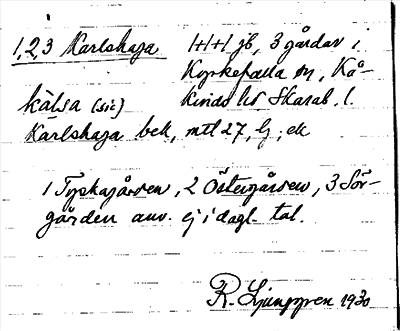 1,2,3 Karlshaga 1+1+1 jb, 3 gårdar i
Kyrkefalla sn, Kå-
kinds hd Skarab. l.
kálsa (sic)
Karlshaga bek, mtl 27, lj, ek
1 Tyskagården, 2 Östergården, 3 Sör-
gården anv. ej i dagl. tal.
R. Ljunggren 1930